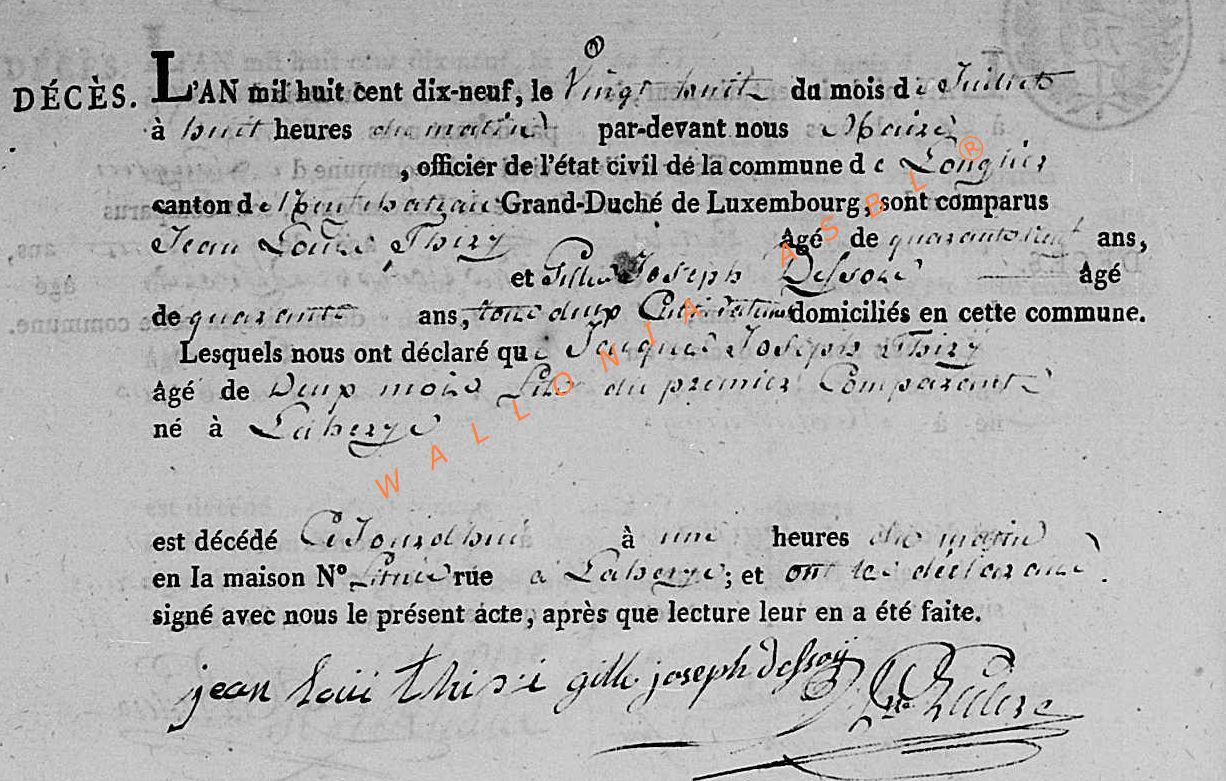 DÉCÈS. L'AN mil huit cent dix-neuf, le Vingt huit du mois de Juillet
à huit heures du matin par-devant nous Maire
, officier de l'état civil de la commune de Longlier
canton de Grand-Duché de Luxembourg, sont comparus
Jean Louis Thiry Âgé de quarante ans,
et Gille Joseph Dessoi Âgé
de quarante ans, tous deux Cultivateurs domiciliés en cette commune.
Lesquels nous ont déclaré que Jacques Joseph Thiry
âgé de Deux mois fils du premier Comparant
né à Laherye
est décédé Cejourdhui à une heures du matin
en la maison N° rue à Laherye; et ont les déclarans
signé avec nous le présent acte, après que lecture leur en a été faite.
jean Loui thiri gille joseph dessoÿ
WALLONIA ASBL ®